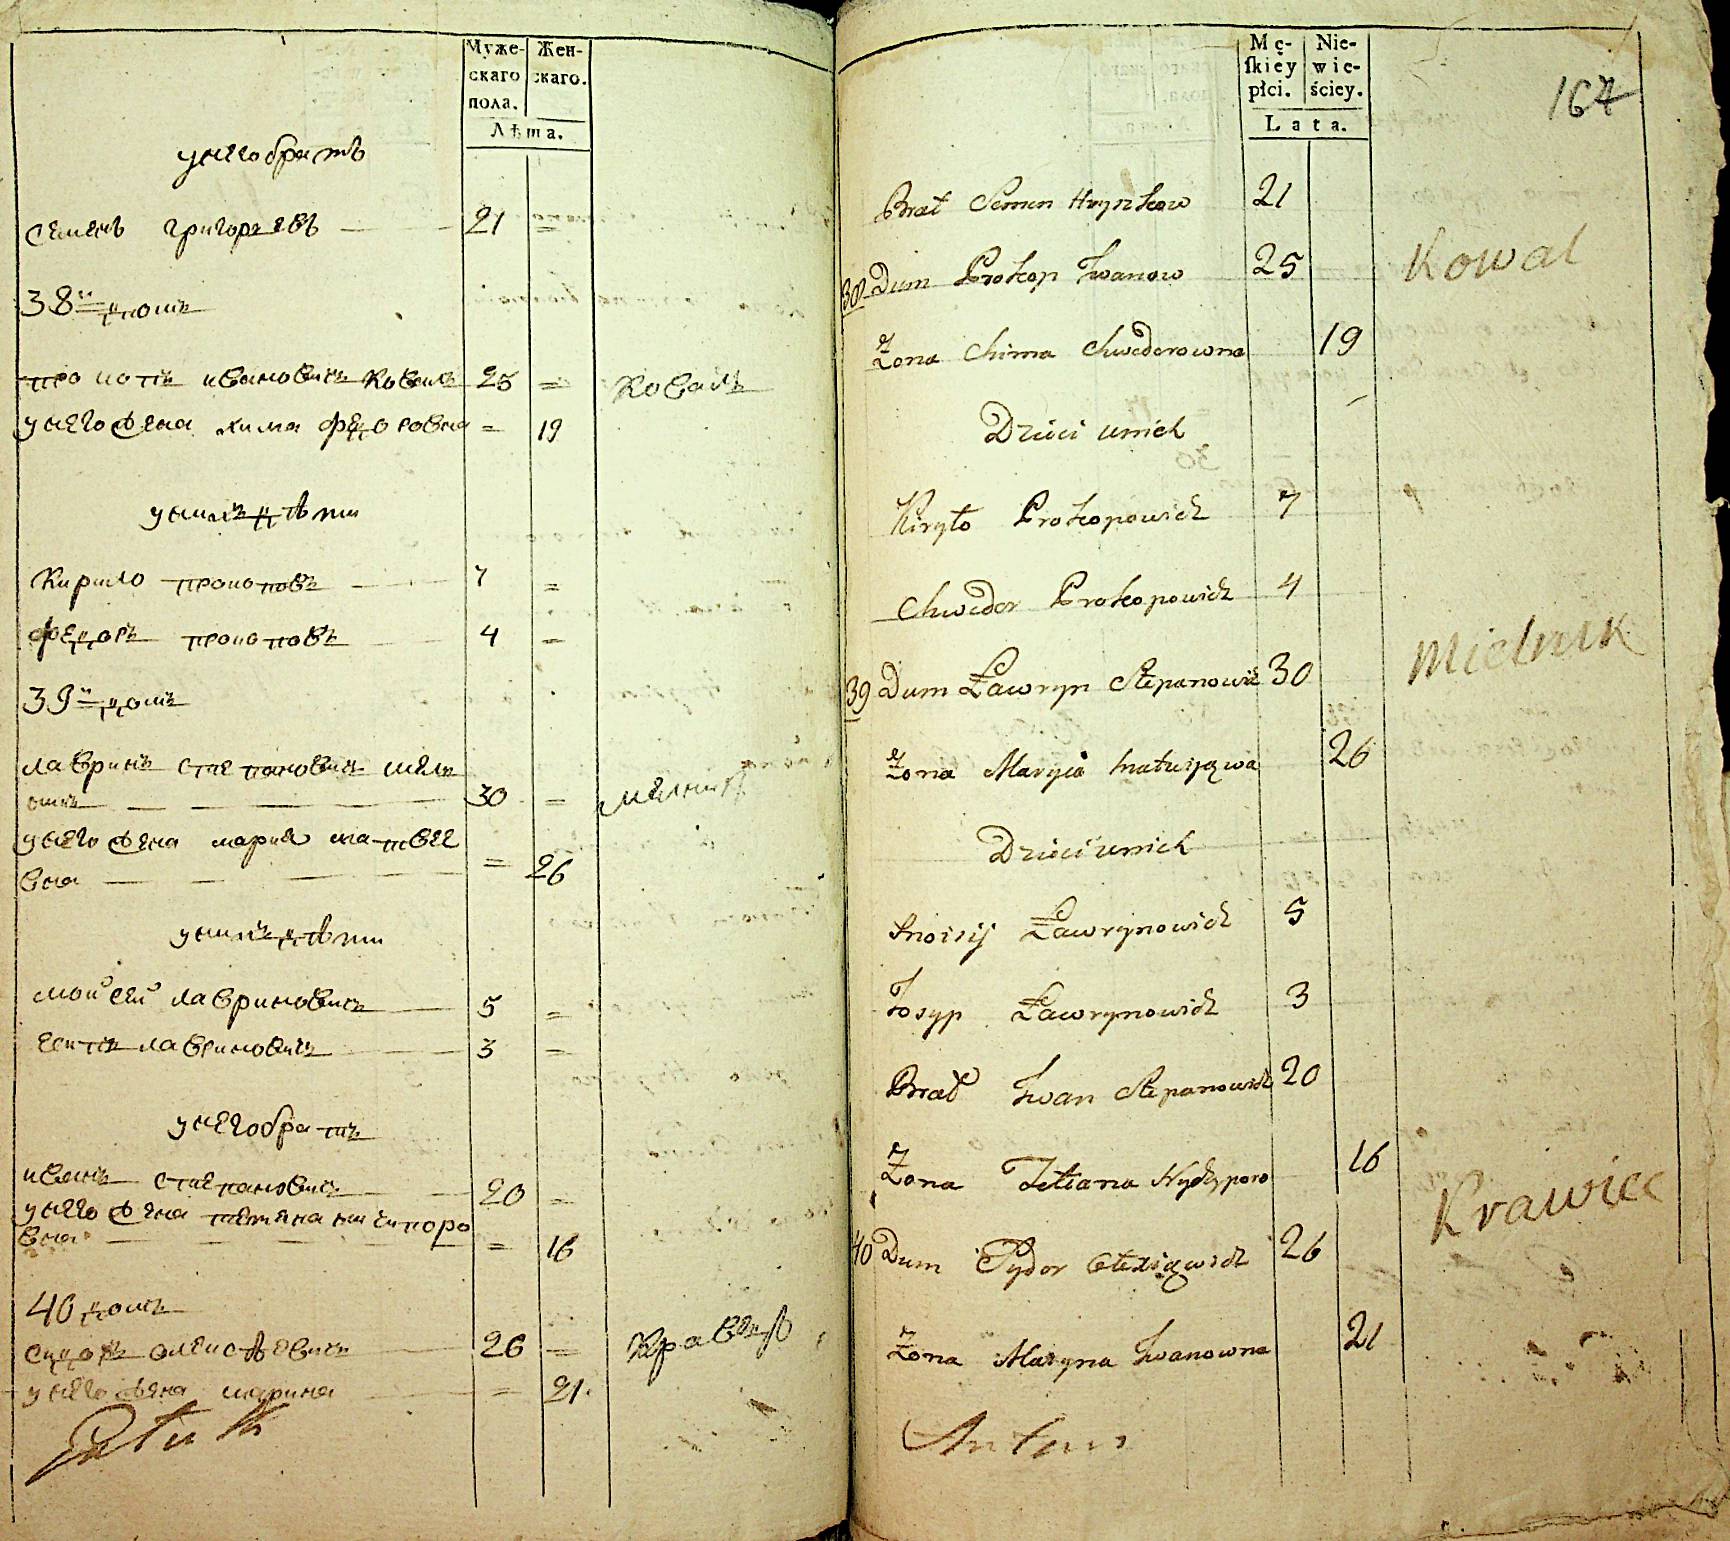 Муже-
скаго
пола.
Жен-
скаго.
Лѣта.
у него братъ
семенъ григорьевъ 21 =
38й домъ
прокопъ ивановичъ коваль 25 = Коваль
у него жена хима федоровна = 19
у нихъ дѣти
Кирило прокоповъ 7 =
федоръ прокоповъ 4 =
39й домъ
лавринъ степановичъ мель
никъ 30 = мелникъ
у него жена мария матвее
вна = 26
у нихъ дѣти
мойсей лавриновичъ 5 =
есипъ лавриновичъ 3 =
у него братъ
иванъ степановичъ 20 =
у него жена татяна ничипоро
вна = 16
40 домъ
сидоръ олексѣевичъ 26 = Кравецъ
у него жена марина = 21.
Mę-
ſkiey
płci.
Nie-
wie-
ściey.
Lata.
167
Brat Semen Hryńkow 21
38 Dum Prokop Iwanow 25 Kowal
Żona Chima Chwedorowna 19
Dzieci unich
Kiryło Prokopowicz 7
Chwedor Prokopowicz 4
39 Dum Ławryn Stepanowicz 30 Mielnik
Żona Maryia 26
Dzieci unich
Moisij Ławrynowicz 5
Josyp Ławrynowicz 3
Brat Iwan Stepanowicz 20
Żona Tetiana Nyczyporo 16
40 Dum Sydor 26 Krawiec
Żona Maryna Iwanowna 21